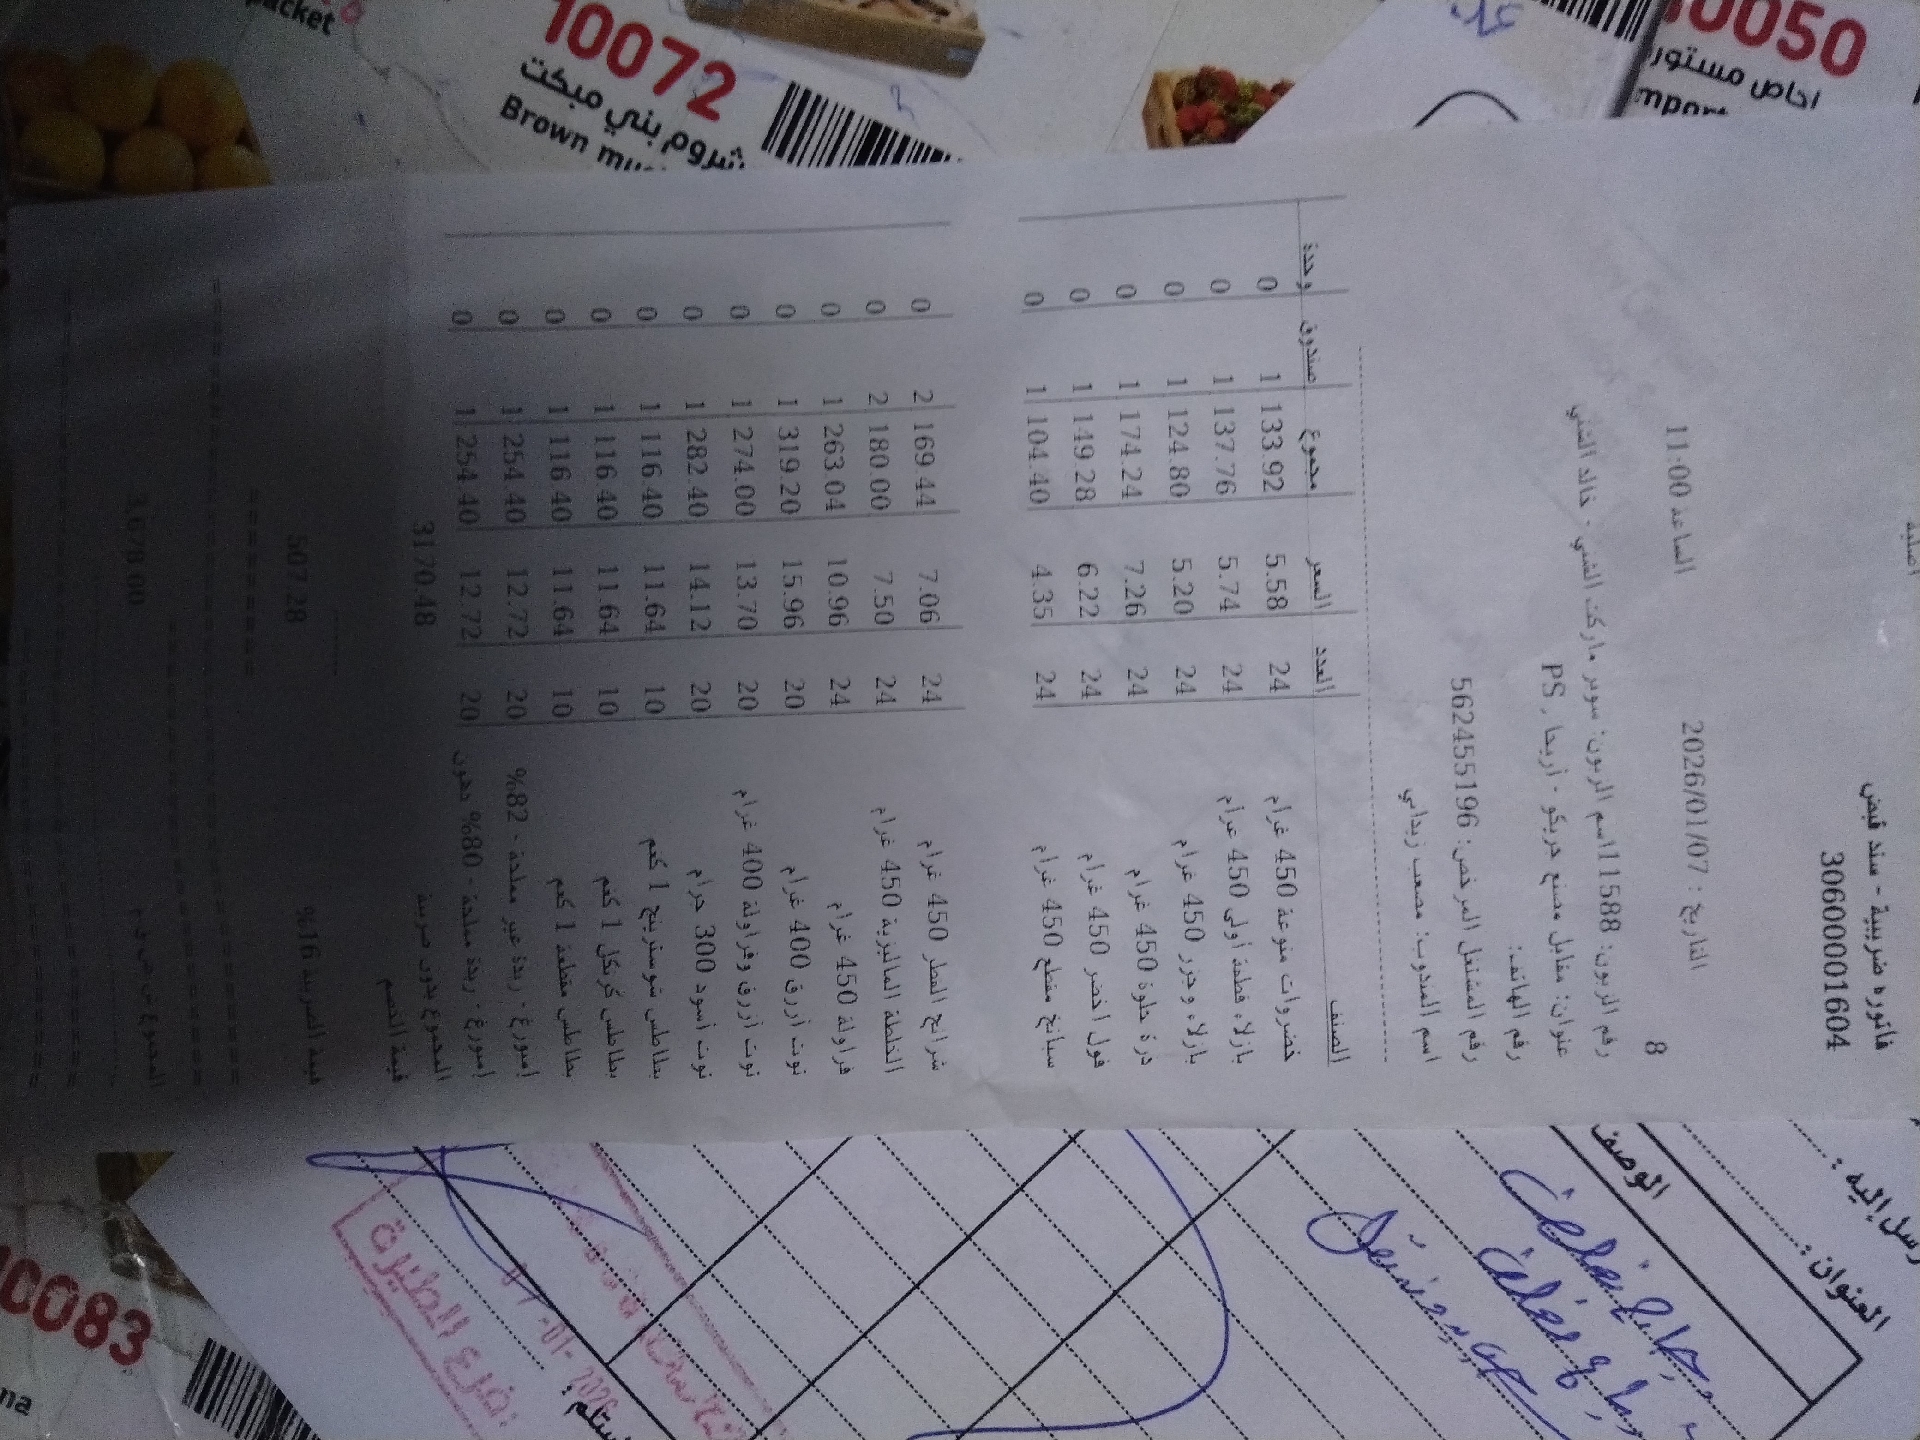 أصلية
فاتورة ضريبية - سند قبض
30600001604
التاريخ : 2026/01/07 الساعة 11:00
8
رقم الزبون: 11588اسم الزبون: سوبر ماركت الشني - خالد الشني
عنوان: مقابل مصنع جريكو - أريحا , PS
رقم الهاتف:
رقم المشتغل المرخص: 562455196
اسم المندوب: مصعب زيداني
الصنف العدد السعر مجموع صندوق وحدة
خضروات منوعة 450 غرام 24 5.58 133.92 1 0
بازلاء قطعة أولى 450 غرام 24 5.74 137.76 1 0
بازلاء وجزر 450 غرام 24 5.20 124.80 1 0
ذرة حلوة 450 غرام 24 7.26 174.24 1 0
فول اخضر 450 غرام 24 6.22 149.28 1 0
سبانخ مقطع 450 غرام 24 4.35 104.40 1 0
شرائح الفطر 450 غرام 24 7.06 169.44 2 0
الخلطة الماليزية 450 غرام 24 7.50 180.00 2 0
فراولة 450 غرام 24 10.96 263.04 1 0
توت أزرق 400 غرام 20 15.96 319.20 1 0
توت أزرق وفراولة 400 غرام 20 13.70 274.00 1 0
توت أسود 300 جرام 20 14.12 282.40 1 0
بطاطس شوسترينج 1 كغم 10 11.64 116.40 1 0
بطاطس كرنكل 1 كغم 10 11.64 116.40 1 0
بطاطس مقطعة 1 كغم 10 11.64 116.40 1 0
إمبورغ - زبدة غير مملحة - 82% 20 12.72 254.40 1 0
إمبورغ - زبدة مملحة - 80% دهون 20 12.72 254.40 1 0
المجموع بدون ضريبة 3170.48
قيمة الخصم
قيمة الضريبة 16% 507.28
3,678.00
10072
شروم بني مبكت
Brown
packet
10050
اجاص مستور
10083
رسل إليه :
العنوان :
الوصف
ستلم:
فرع الطيرة